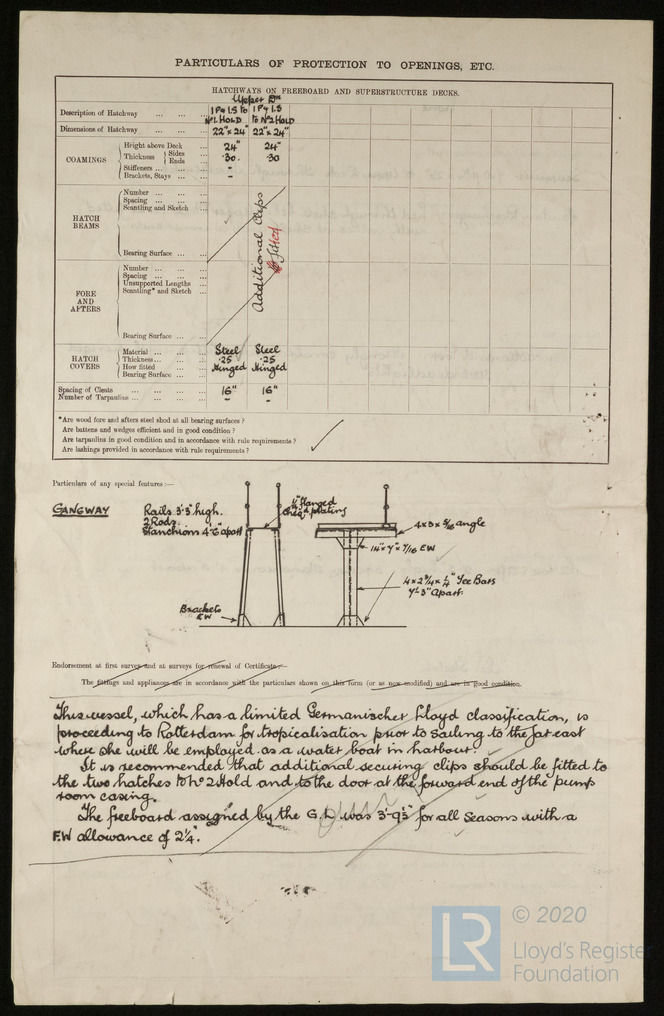 PARTICULARS OF PROTECTION TO OPENINGS, ETC.
HATCHWAYS ON FREEBOARD AND SUPERSTRUCTURE DECKS.
Upper Dk
Description of Hatchway ... ... ... 1 P & 1 S to Nº1 HOLD 1 P & 1 S to Nº2 HOLD
Dimensions of Hatchway ... ... ... 22" x 24" 22" x 24"
COAMINGS
Height above Deck ... 24" 24"
Thickness { Sides ... .30. .30
Ends ...
Stiffeners ... ... ... -
Brackets, Stays ... ... -
HATCH BEAMS
Number ... ... ... ...
Spacing ... ... ... ...
Scantling and Sketch ...
Bearing Surface ... ...
Additional Clips fitted
FORE AND AFTERS
Number ... ... ... ...
Spacing ... ... ... ...
Unsupported Lengths ...
Scantling* and Sketch ...
Bearing Surface ... ...
HATCH COVERS
Material ... ... ... Steel Steel
Thickness ... ... ... .25 .25
How fitted ... ... Hinged Hinged
Bearing Surface ... ...
Spacing of Cleats ... ... ... 16" 16"
Number of Tarpaulins ... ... ... - -
*Are wood fore and afters steel shod at all bearing surfaces?
Are battens and wedges efficient and in good condition?
Are tarpaulins in good condition and in accordance with rule requirements?
Are lashings provided in accordance with rule requirements?
Particulars of any special features :—
GANGWAY
Rails 3'3" high.
2 Rods.
Stanchions 4'6" apart
¼" flanged
cheq'd plating
4 x 3 x 5/16 angle
14" x 7" x 7/16 EW
4 x 2¾ x ¼" Tee Bars
7'-3" Apart
Brackets
EW
Endorsement at first survey and at surveys for renewal of Certificate—
The fittings and appliances are in accordance with the particulars shown on this form (or as now modified) and are in good condition.
This vessel, which has a limited Germanischer Lloyd classification, is
proceeding to Rotterdam for tropicalisation prior to sailing to the far east
where she will be employed as a water boat in harbour.
It is recommended that additional securing clips should be fitted to
the two hatches to Nº 2 Hold and to the door at the forward end of the pump
room casing.
The freeboard assigned by the G.L. was 3'-9½" for all Seasons with a
F.W allowance of 2¼".
LR
© 2020
Lloyd's Register
Foundation